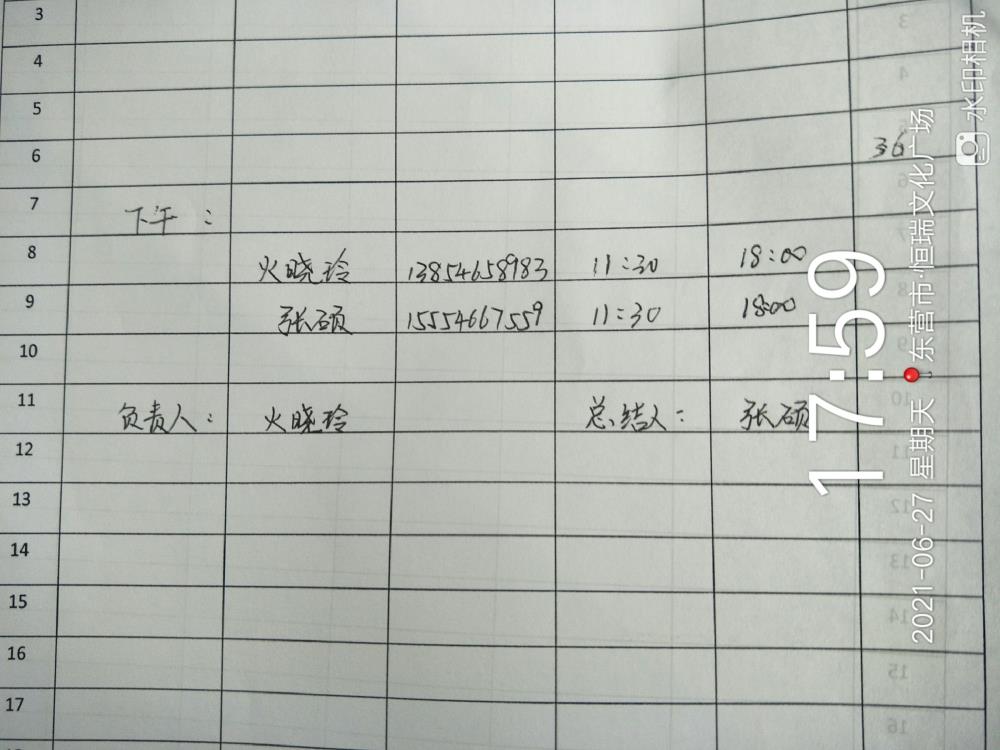 3
4
5
6 36
7 下午：
8 火晓玲 13854658983 11:30 18:00
9 张硕 15554667559 11:30 18:00
10
11 负责人： 火晓玲 总结人： 张硕
12
13
14
15
16
17
17:59
2021-06-27 星期天 东营市·恒瑞文化广场
水印相机